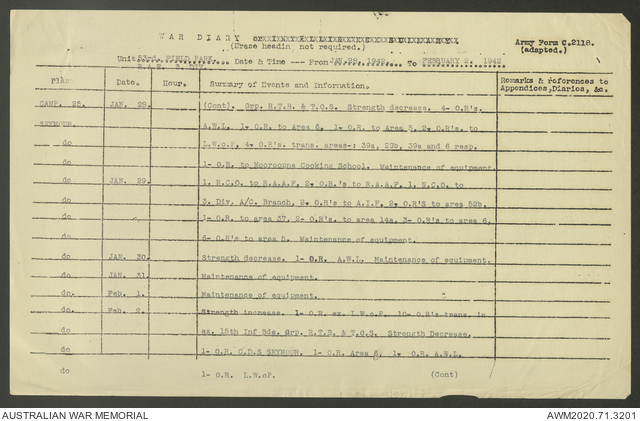 WAR DIARY
(Erase headin not required.)
Army Form C.2118.
(adapted.)
Unit 53rd. FIELD PARK Date & Time --- From JAN.29. 1942. To FEBRUARY 2. 1942
R.A.E. 3. DIV.
Place Date. Hour. Summary of Events and Information. Remarks & references to Appendices, Diaries, &c.
CAMP. 25. JAN. 29. (Cont). Grp. R.T.B. & T.O.S. Strength decrease. 4- O.R's.
SEYMOUR. A.W.L. 1- O.R. to Area 6. 1- O.R. to Area 5, 2- O.R's. to
do L.W.o.P. 4- O.R's. trans. areas-: 39a, 29b, 39a and 6 resp.
do 1- O.R. to Mooroopna Cooking School. Maintenance of equipment.
do JAN. 29. 1. N.C.O. to R.A.A.F. 2- O.R.'s to R.A.A.F. 1. N.C.O. to
do 3. Div. A/C. Branch, 2- O.R's to A.I.F. 2- O.R'S to area 52b.
do 1- O.R. to area 37. 2- O.R's. to area 14a, 3- O.R's to area 6.
do 6- O.R's to area 5. Maintenance of equipment.
do JAN. 30. Strength decrease. 1- O.R. A.W.L. Maintenance of equipment.
do JAN. 31. Maintenance of equipment.
do. Feb. 1. Maintenance of equipment.
do. Feb. 2. Strength increase. 1- O.R. ex. L.W.o.P. 10- O.R's trans. in
do ex. 15th Inf Bde. Grp. R.T.B. & T.O.S. Strength Decrease.
do 1- O.R. C.D.S SEYMOUR. 1- O.R. Area 6, 1- O.R. A.W.L.
do 1- O.R. L.W.oP. (Cont)
AUSTRALIAN WAR MEMORIAL AWM2020.71.3201